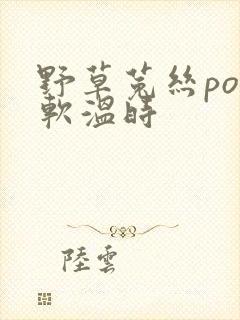 野草菟絲po
軟溫時
陸雲